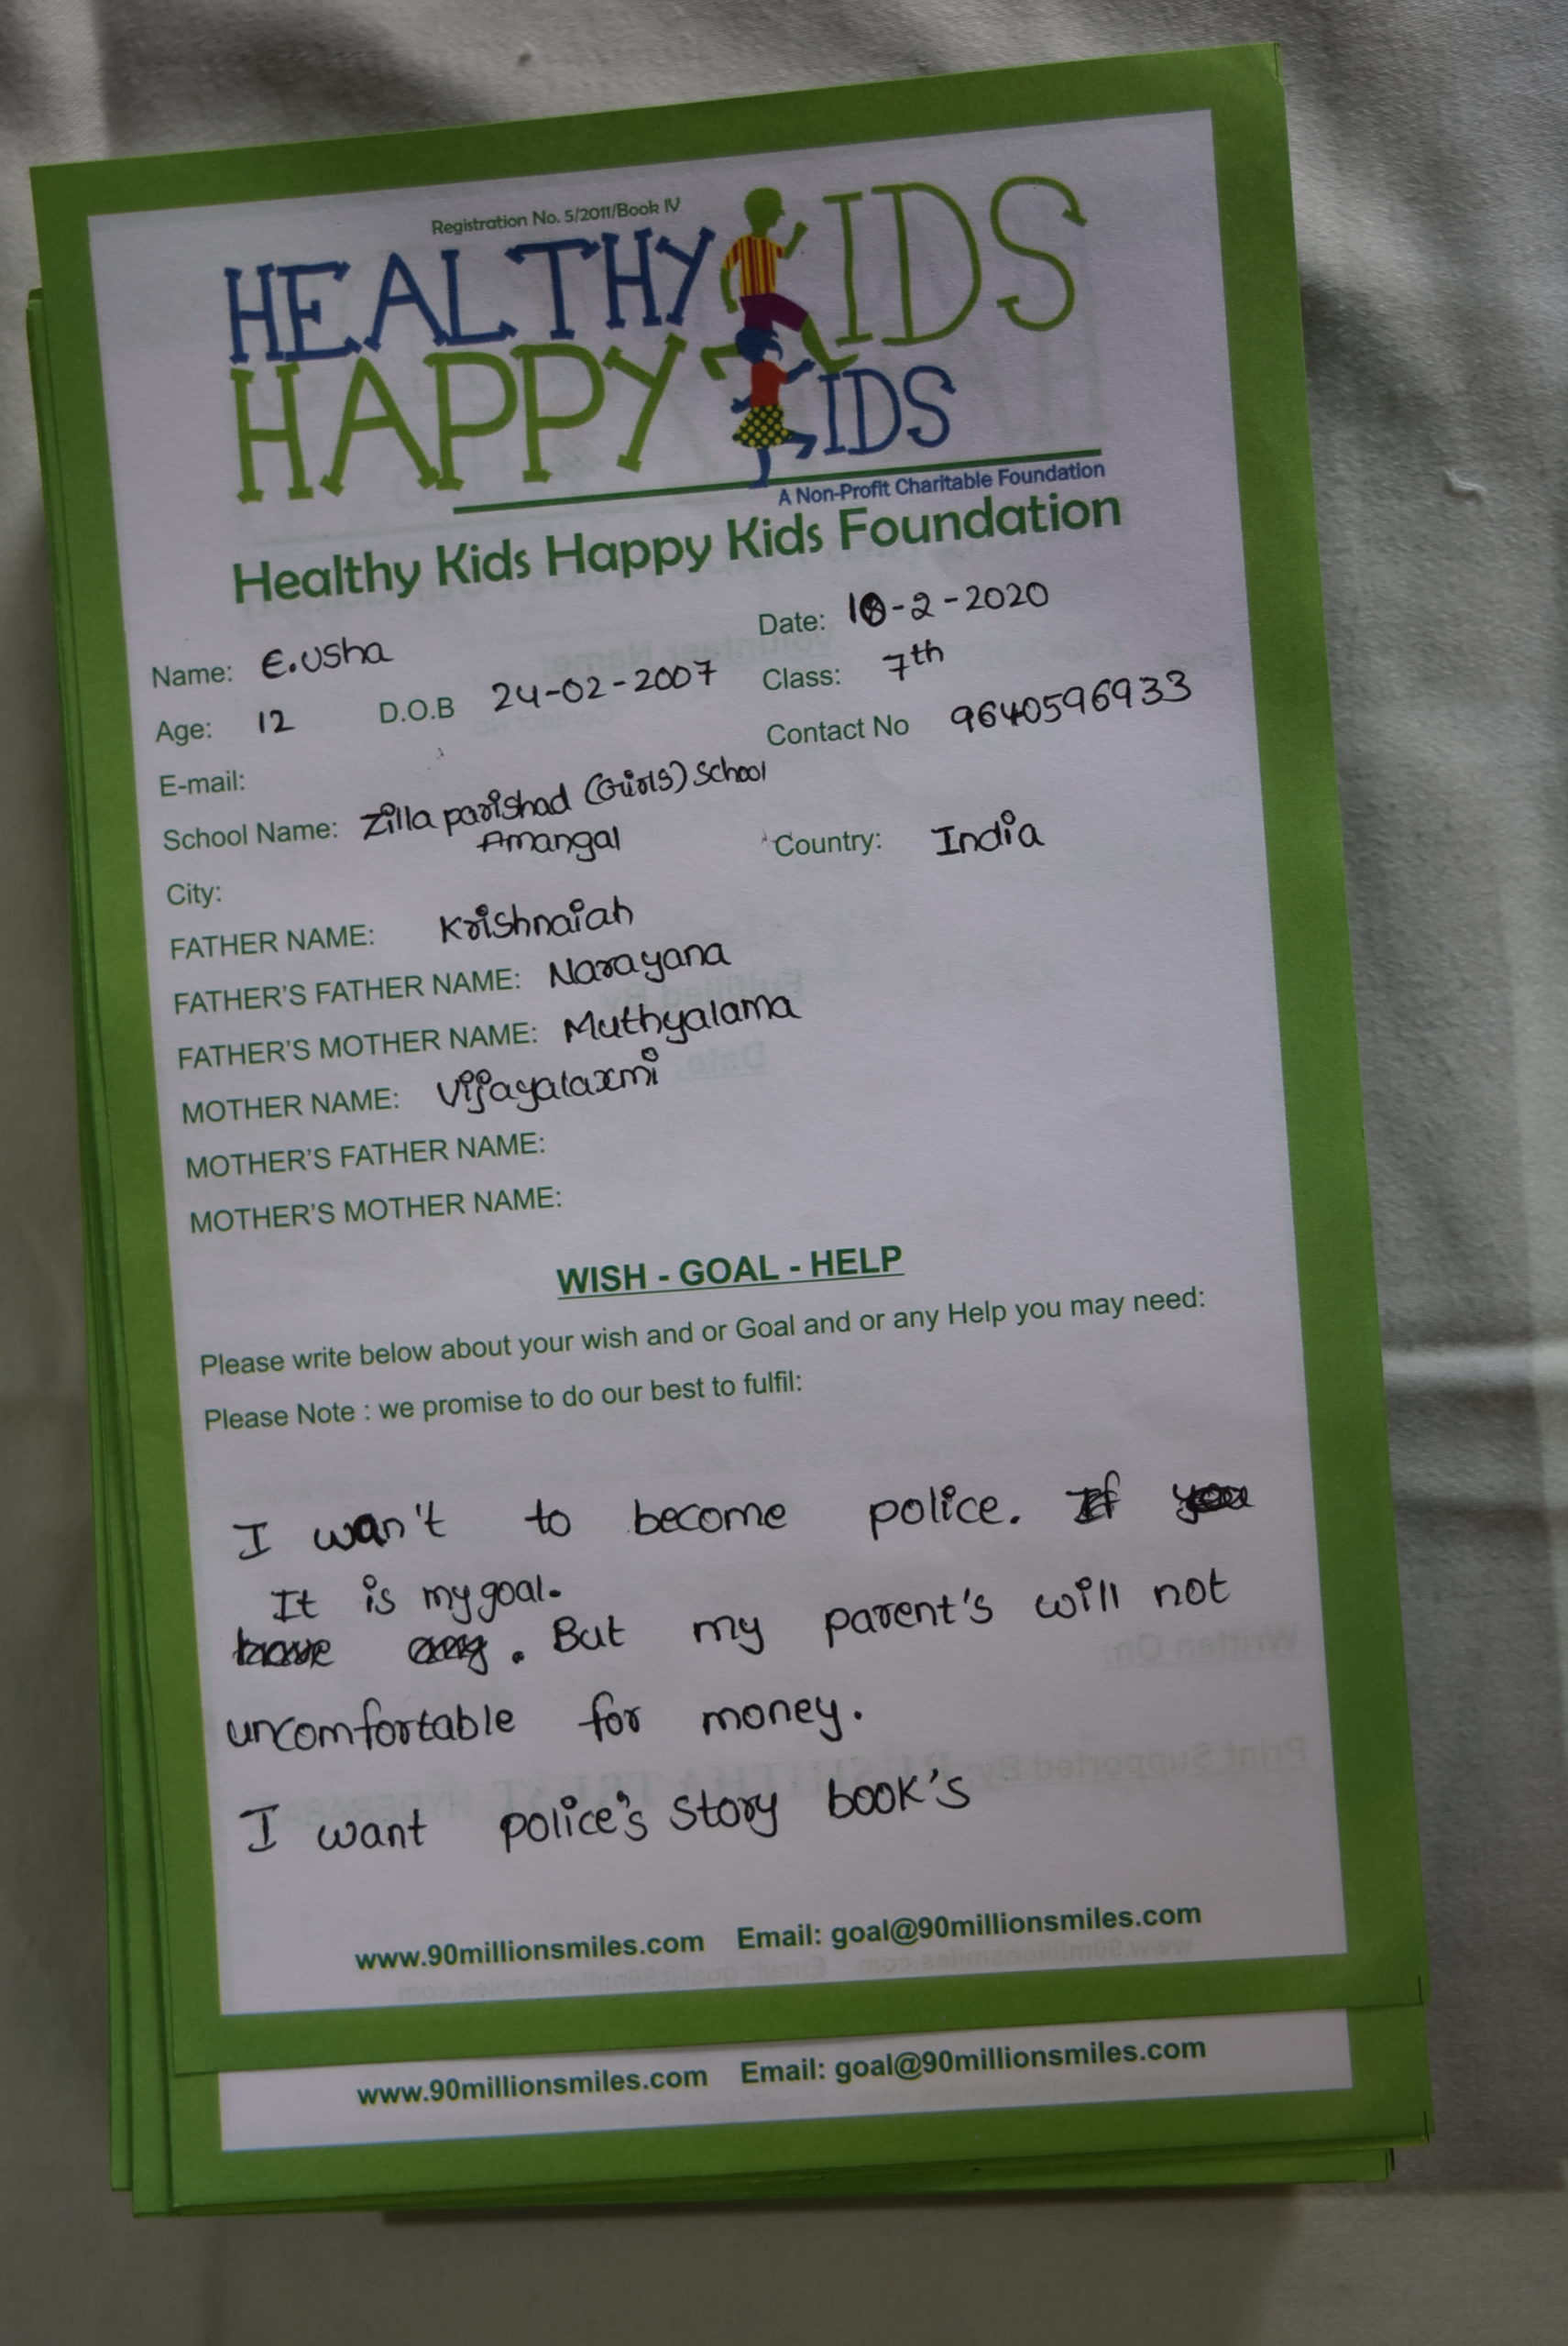 Registration No. 5/2011/Book IV
HEALTHY KIDS
HAPPY KIDS
A Non-Profit Charitable Foundation
Healthy Kids Happy Kids Foundation
Name: E.Usha Date: 18-2-2020
Age: 12 D.O.B 24-02-2007 Class: 7th
E-mail: Contact No 9640596933
School Name: Zilla parishad (Girls) School
Amangal
City: Country: India
FATHER NAME: Krishnaiah
FATHER'S FATHER NAME: Narayana
FATHER'S MOTHER NAME: Muthyalama
MOTHER NAME: Vijayalaxmi
MOTHER'S FATHER NAME:
MOTHER'S MOTHER NAME:
WISH - GOAL - HELP
Please write below about your wish and or Goal and or any Help you may need:
Please Note : we promise to do our best to fulfil:
I wan't to become police. If you
It is my goal.
have any. But my parent's will not
uncomfortable for money.
I want police's story book's
www.90millionsmiles.com Email: goal@90millionsmiles.com
www.90millionsmiles.com Email: goal@90millionsmiles.com